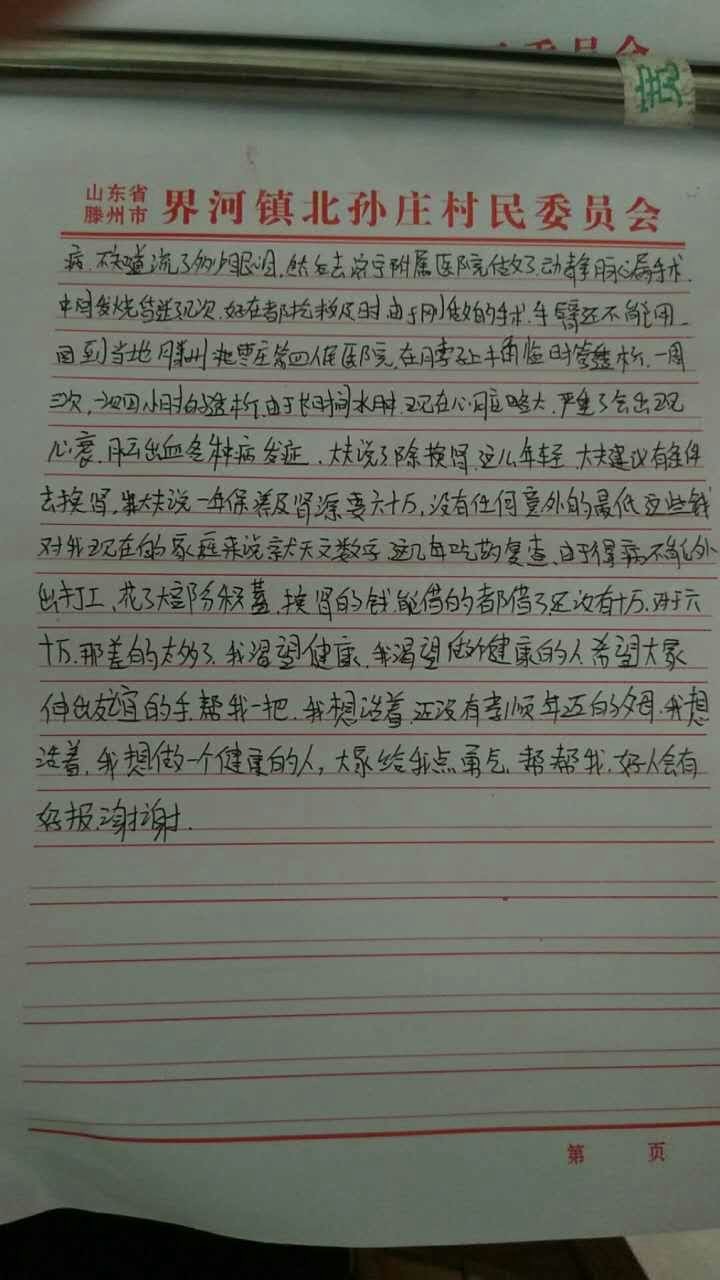 山东省
滕州市
界河镇北孙庄村民委员会
病、不知道流了多少眼泪,然后去济宁附属医院做了动静脉心漏手术.
中间发烧昏迷了几次.好在都抢救及时.由于刚做的手术.手臂还不能用.
回到当地滕州 枣庄第四人民医院,在脖子上半角临时管透析.一周
三次,一次四小时的透析.由于长时间水肿.现在心脏略大.严重了会出现
心衰.脑出血各种病发症.大夫说了除换肾.这么年轻 大夫建议有条件
去换肾.大夫说一年保养及肾源要六十万,没有任何意外的最低 这些钱
对我现在的家庭来说就天文数字 这几年吃药复查、由于得病不能外
出打工、花了大部分积蓄,换肾的钱.能借的都借了还没有十万.对于六
十万.那差的太多了.我渴望健康,我渴望做个健康的人.希望大家
伸出友谊的手.帮我一把.我想活着.还没有孝顺年迈的父母.我想
活着,我想做一个健康的人,大家给我点勇气 帮帮我.好人会有
好报.谢谢.
第 页
宽